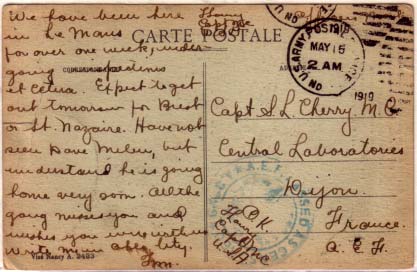 We have been here
in Le Mans
for over one week, under
going inspections
et Cetera. Expect to get
out tomorrow for Brest
or St. Nazaire. Have not
seen Dave Milen, but
understand he is going
home very soon. All the
gang misses you and
wishes you were with us
Write
CARTE POSTALE
CORRESPONDANCE
U.S. ARMY POSTAL SERVICE
MAY 15
2 AM
1919
Capt S. L. Cherry M.C
Central Laboratories
Dijon
France.
A. E. F.
O.K
Capt
U.S.A
Visé Nancy A. 2483